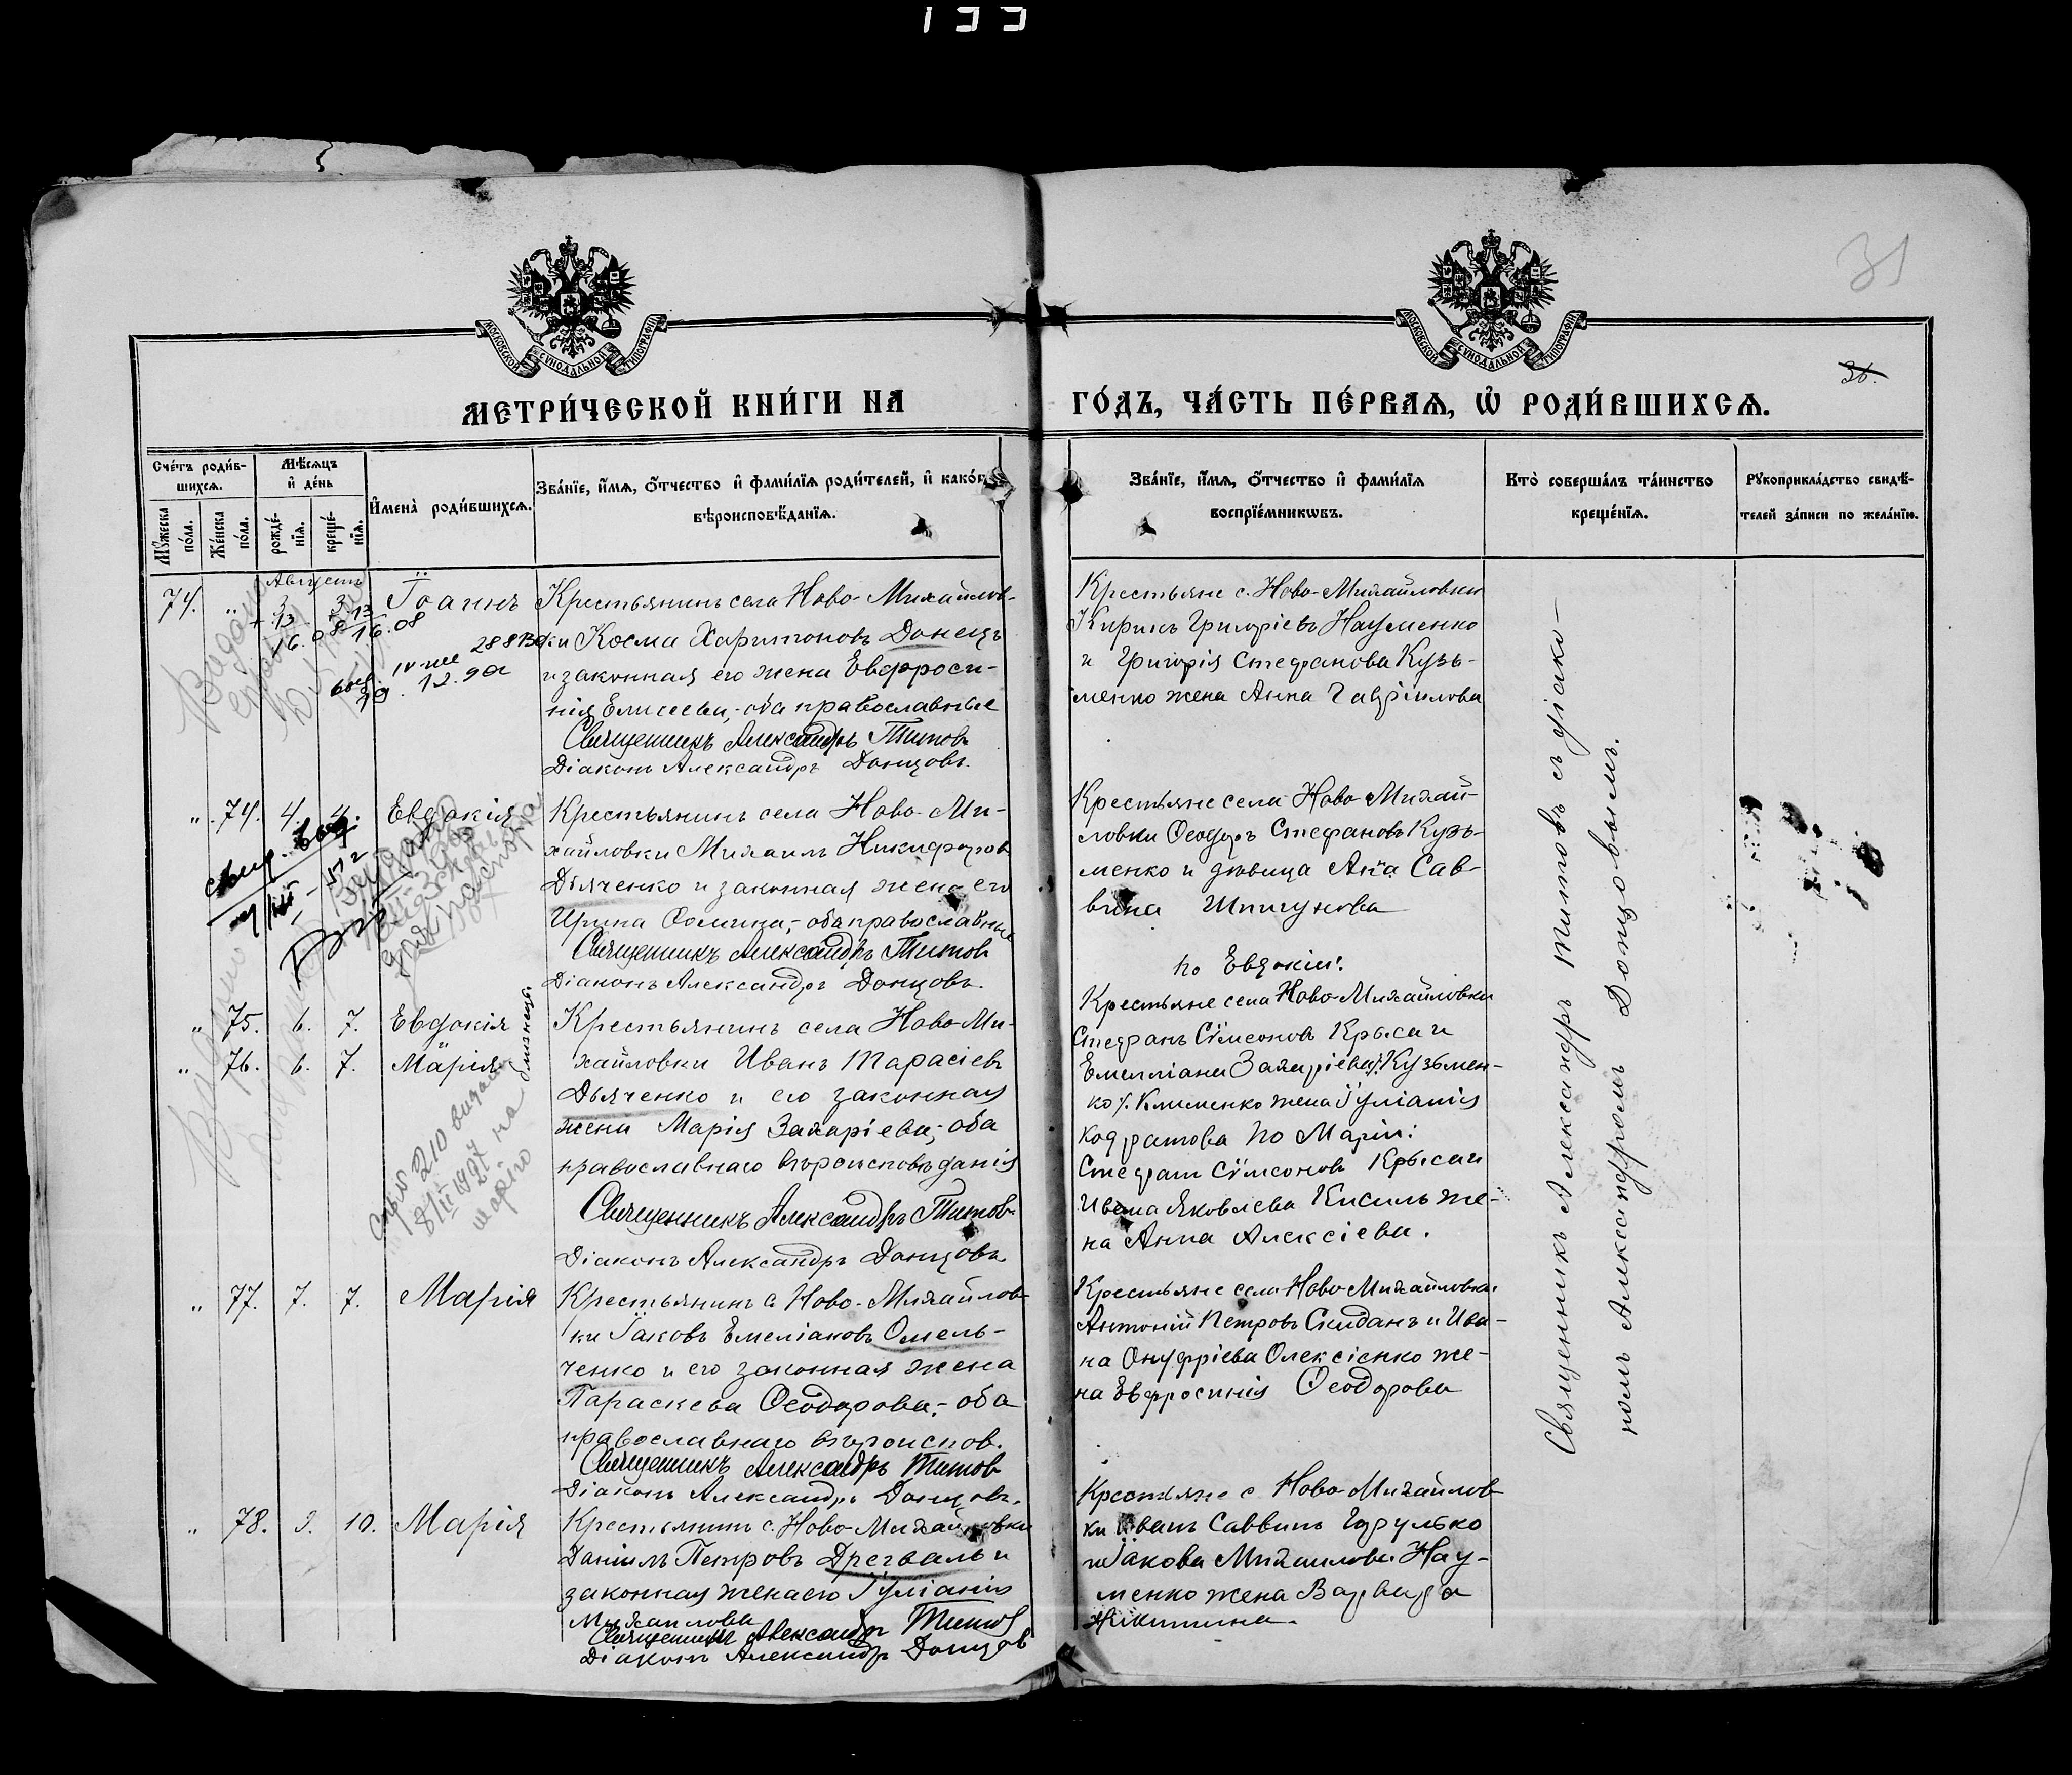 133
31
36.
МОСКОВСКОЙ СѴНОДАЛЬНОЙ ТИПОГРАФІИ
МОСКОВСКОЙ СѴНОДАЛЬНОЙ ТИПОГРАФІИ
МЕТРИ́ЧЕСКОЙ КНИ́ГИ НА
ГО́ДЪ, ЧА́СТЬ ПЕ́РВАѦ, Ѡ҆ РОДИ́ВШИХСѦ.
Сче́тъ роди́в-
шихсѧ.
Мѣ́сѧцъ
и҆ де́нь
Мꙋ́жеска
по́ла.
Же́нска
по́ла.
рожде́-
нїѧ.
креще́-
нїѧ.
И҆мена̀ роди́вшихсѧ.
Зва́нїе, и҆́мѧ, ѻ҆́тчество и҆ фами́лїѧ роди́телей, и҆ како́гѡ
вѣроисповѣ́данїѧ.
Зва́нїе, и҆́мѧ, ѻ҆́тчество и҆ фами́лїѧ
воспрїе́мникѡвъ.
Кто̀ соверша́лъ та́инство
креще́нїѧ.
Рꙋкоприкла́дство свидѣ́-
телей за́писи по жела́нїю.
Августъ
74. " 3. 3. Іоаннъ
Крестьянинъ села Ново-Михайлов-
ки Косма Харитоновъ Донецъ
и законная его жена Евфроси-
нія Елисеева,- оба православные
Священникъ Александръ Титовъ
Діаконъ Александръ Донцовъ.
Крестьяне с. Ново-Михайловки
Кирикъ Григоріевъ Науменко
и Григорія Стефанова Кузь-
менко жена Анна Гавріилова
" 74. 4. 4. Евдокія
Крестьянинъ села Ново-Ми-
хайловки Михаилъ Никифоровъ
Дьяченко и законная жена его
Ирина Ѳомина,- оба православные
Священникъ Александръ Титовъ
Діаконъ Александръ Донцовъ.
Крестьяне села Ново-Михай-
ловки Ѳеодоръ Стефановъ Кузь-
менко и дѣвица Анна Сав-
вина
" 75. 6. 7. Евдокія
" 76. 6. 7. Марія
близнецы
Крестьянинъ села Ново-Ми-
хайловки Иванъ Тарасіевъ
Дьяченко и его законная
жена Марія Захаріева,- оба
православнаго вѣроисповѣданія
Священникъ Александръ Титовъ
Діаконъ Александръ Донцовъ
по Евдокіи:
Крестьяне села Ново-Михайловки
Стефанъ Сѵмеоновъ Крыса и
Емелліана Захаріева Кузьмен-
ко Клименко жена Іуліанія
Кодратова по Маріи:
Стефанъ Сѵмеоновъ Крыса и
Ивана Яковлева Кисиль же-
на Анна Алексіева.
" 77. 7. 7. Марія
Крестьянинъ с. Ново-Михайлов-
ки Іаковъ Емеліановъ Омель-
ченко и его законная жена
Параскева Ѳеодорова,- оба
православнаго вѣроиспов.
Священникъ Александръ Титовъ
Діаконъ Александръ Донцовъ.
Крестьяне села Ново-Михайловки
Антоній Петровъ Скиданъ и Ива-
на Онуфріева Олексіенко же-
на Евфросинія Ѳеодорова
" 78. 9. 10. Марія
Крестьянинъ с. Ново-Михайловки
Даніилъ Петровъ Дрегваль и
законная жена его Іуліанія
Михаилова
Священникъ Александръ Титовъ
Діаконъ Александръ Донцовъ
Крестьяне с. Ново-Михайлов-
ки Иванъ Саввинъ
и Іакова Михаилова Нау-
менко жена Варвара
Никитина.
Священникъ Александръ Титовъ съ діако-
номъ Александромъ Донцовымъ.